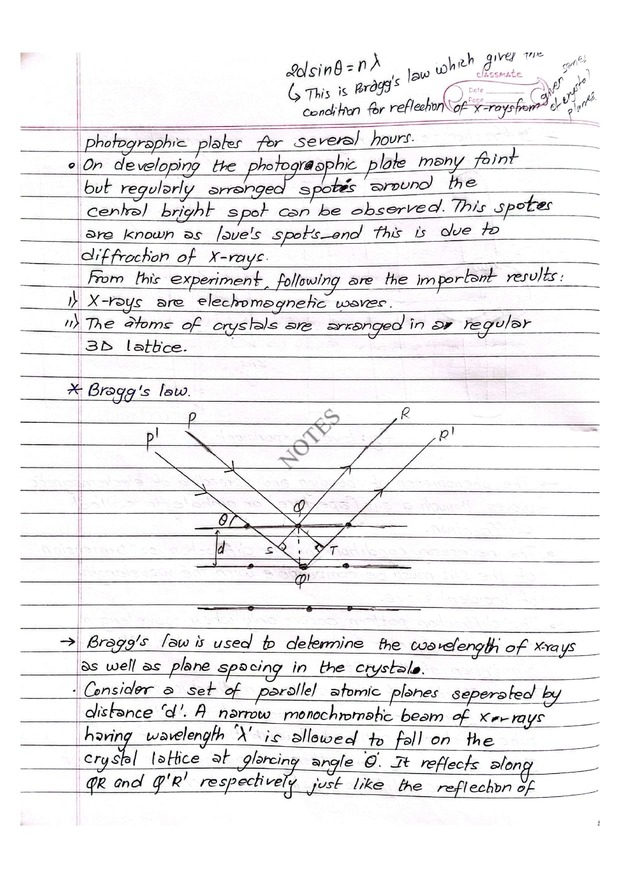 2dsinθ = nλ
↳ This is Bragg's law which gives the
condition for reflection of x-rays from given
some
crystal
planes.
classmate
Date
Page
photographic plates for several hours.
• On developing the photographic plate many faint
but regularly arranged spotes around the
central bright spot can be observed. This spotes
are known as laue's spots and this is due to
diffraction of X-rays.
From this experiment, following are the important results:
i) X-rays are electromagnetic waves.
ii) The atoms of crystals are arranged in a regular
3D lattice.
* Bragg's law.
P' P R R'
NOTES
θ Q
d S T
Q'
→ Bragg's law is used to determine the wavelength of x-rays
as well as plane spacing in the crystals.
• Consider a set of parallel atomic planes seperated by
distance 'd'. A narrow monochromatic beam of x-rays
having wavelength 'λ' is allowed to fall on the
crystal lattice at glancing angle 'θ'. It reflects along
QR and Q'R' respectively just like the reflection of